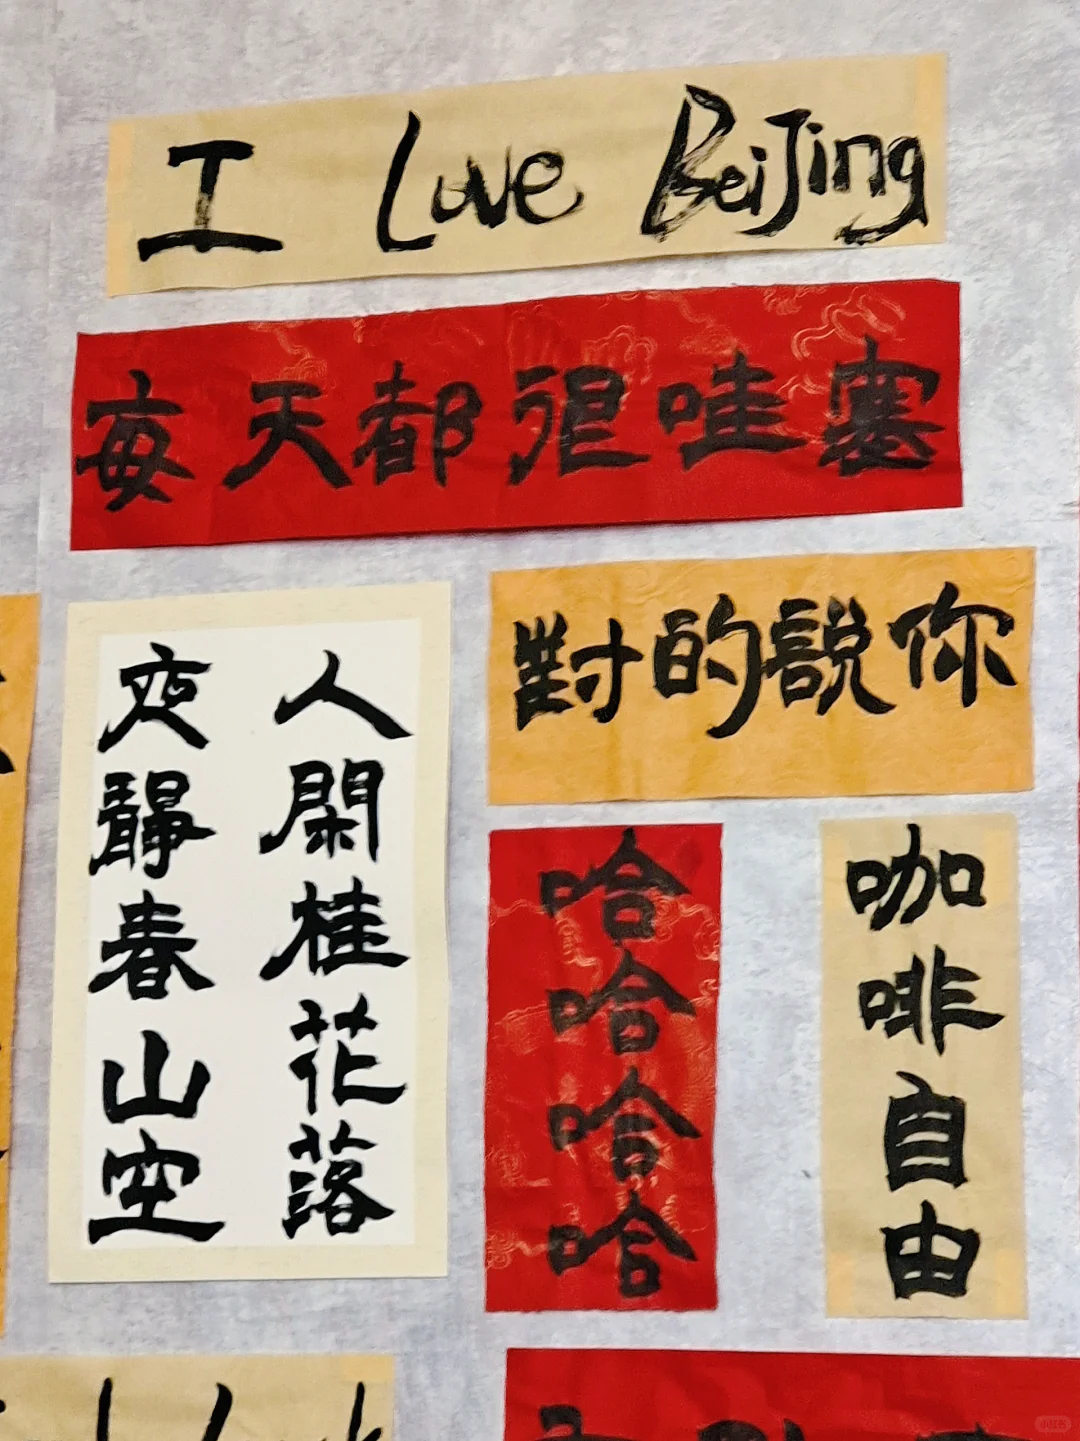 I Love BeiJing
每天都很哇塞
你說的對
人閑桂花落
夜靜春山空
哈哈哈哈
咖啡自由
小红书